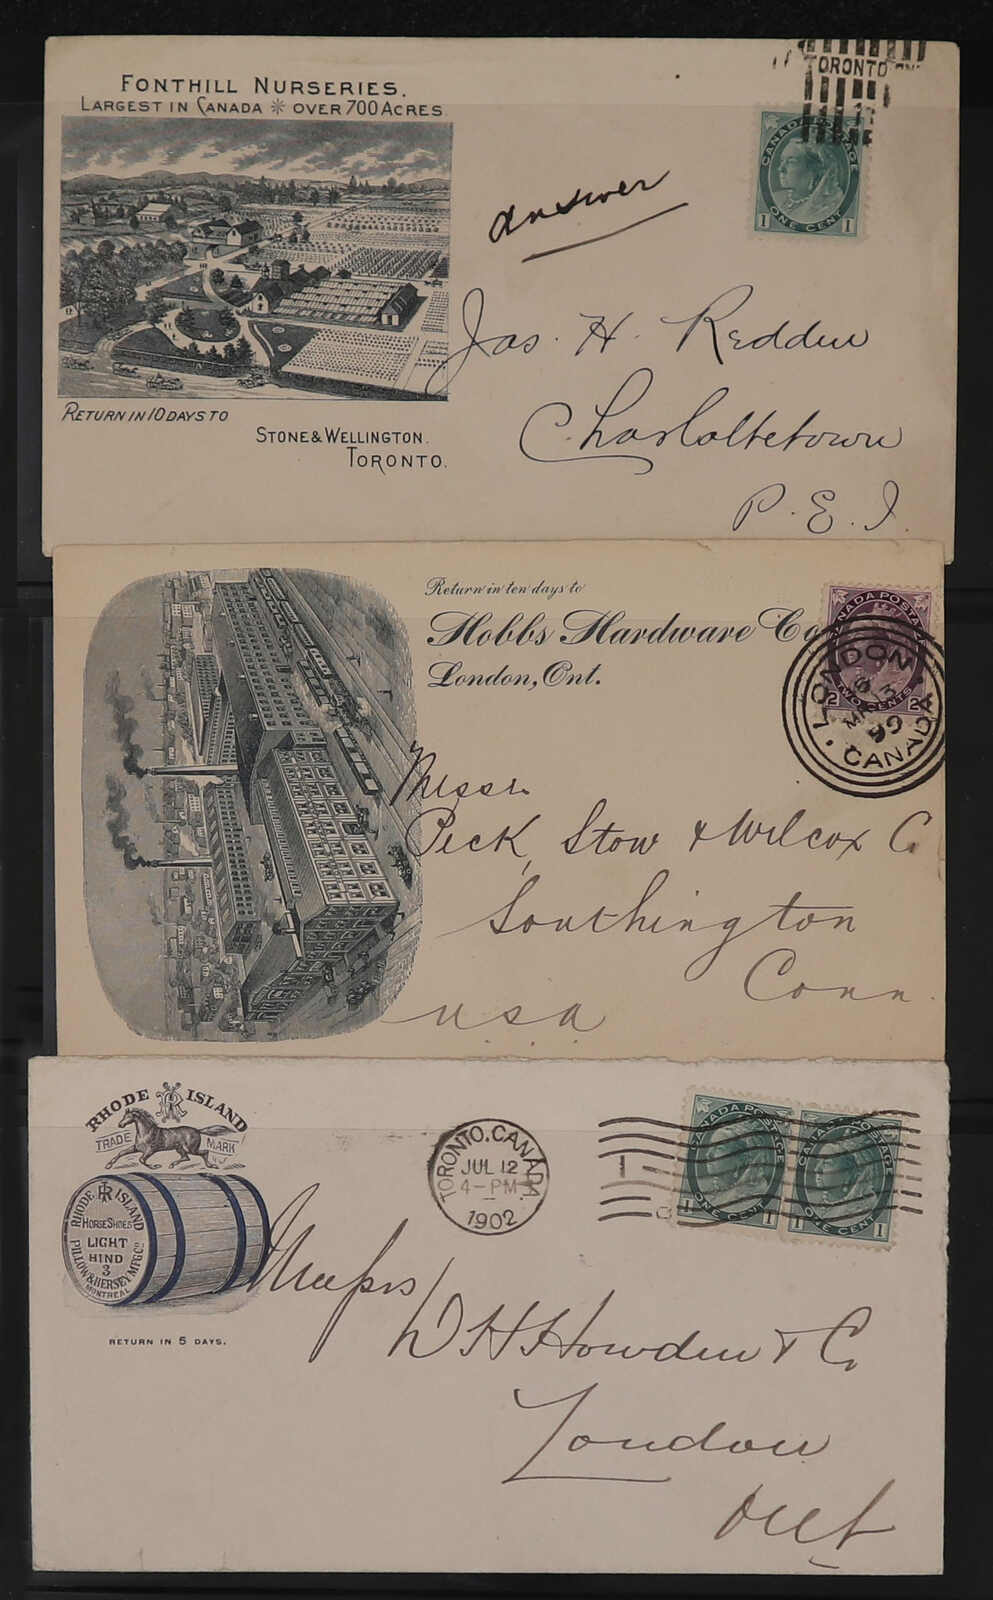 FONTHILL NURSERIES.
LARGEST IN CANADA ✻ OVER 700 ACRES
TORONTO
CANADA POSTAGE
1 ONE CENT 1
answer
Jas. H. Redden
Charlottetown
P. E. I.
RETURN IN 10 DAYS TO
STONE & WELLINGTON.
TORONTO.
Return in ten days to
Hobbs Hardware Co
London, Ont.
CANADA POSTAGE
2 TWO CENTS 2
LONDON
6
MR 3
99
CANADA
Messrs
Peck, Stow & Wilcox Co
Southington
Conn.
U.S.A
RHODE ISLAND
TRADE MARK
RHODE ISLAND
HORSE SHOES
LIGHT
HIND
3
PILLOW & HERSEY MFG CO
MONTREAL
RETURN IN 5 DAYS.
TORONTO, CANADA.
JUL 12
4-PM
1902
CANADA POSTAGE
1 ONE CENT 1
CANADA POSTAGE
1 ONE CENT 1
Messrs
D H Howden & Co
London
Ont